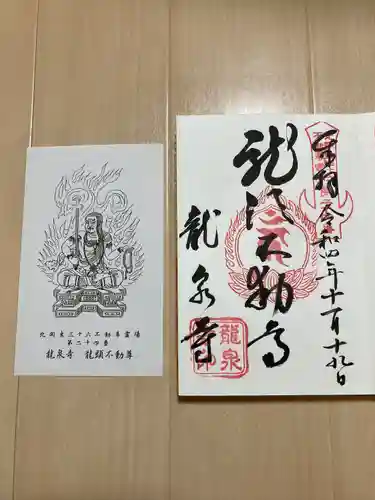 北関東三十六不動尊霊場
第二十四番
龍泉寺 龍頭不動尊
奉拝 令和四年十一月十九日
龍頭不動尊
龍泉寺
龍泉